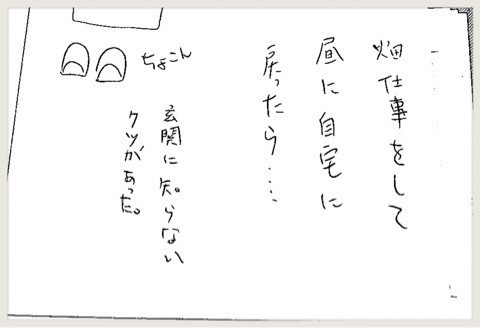 畑仕事をして
昼に自宅に
戻ったら‥‥
ちょこん
玄関に知らない
クツがあった。